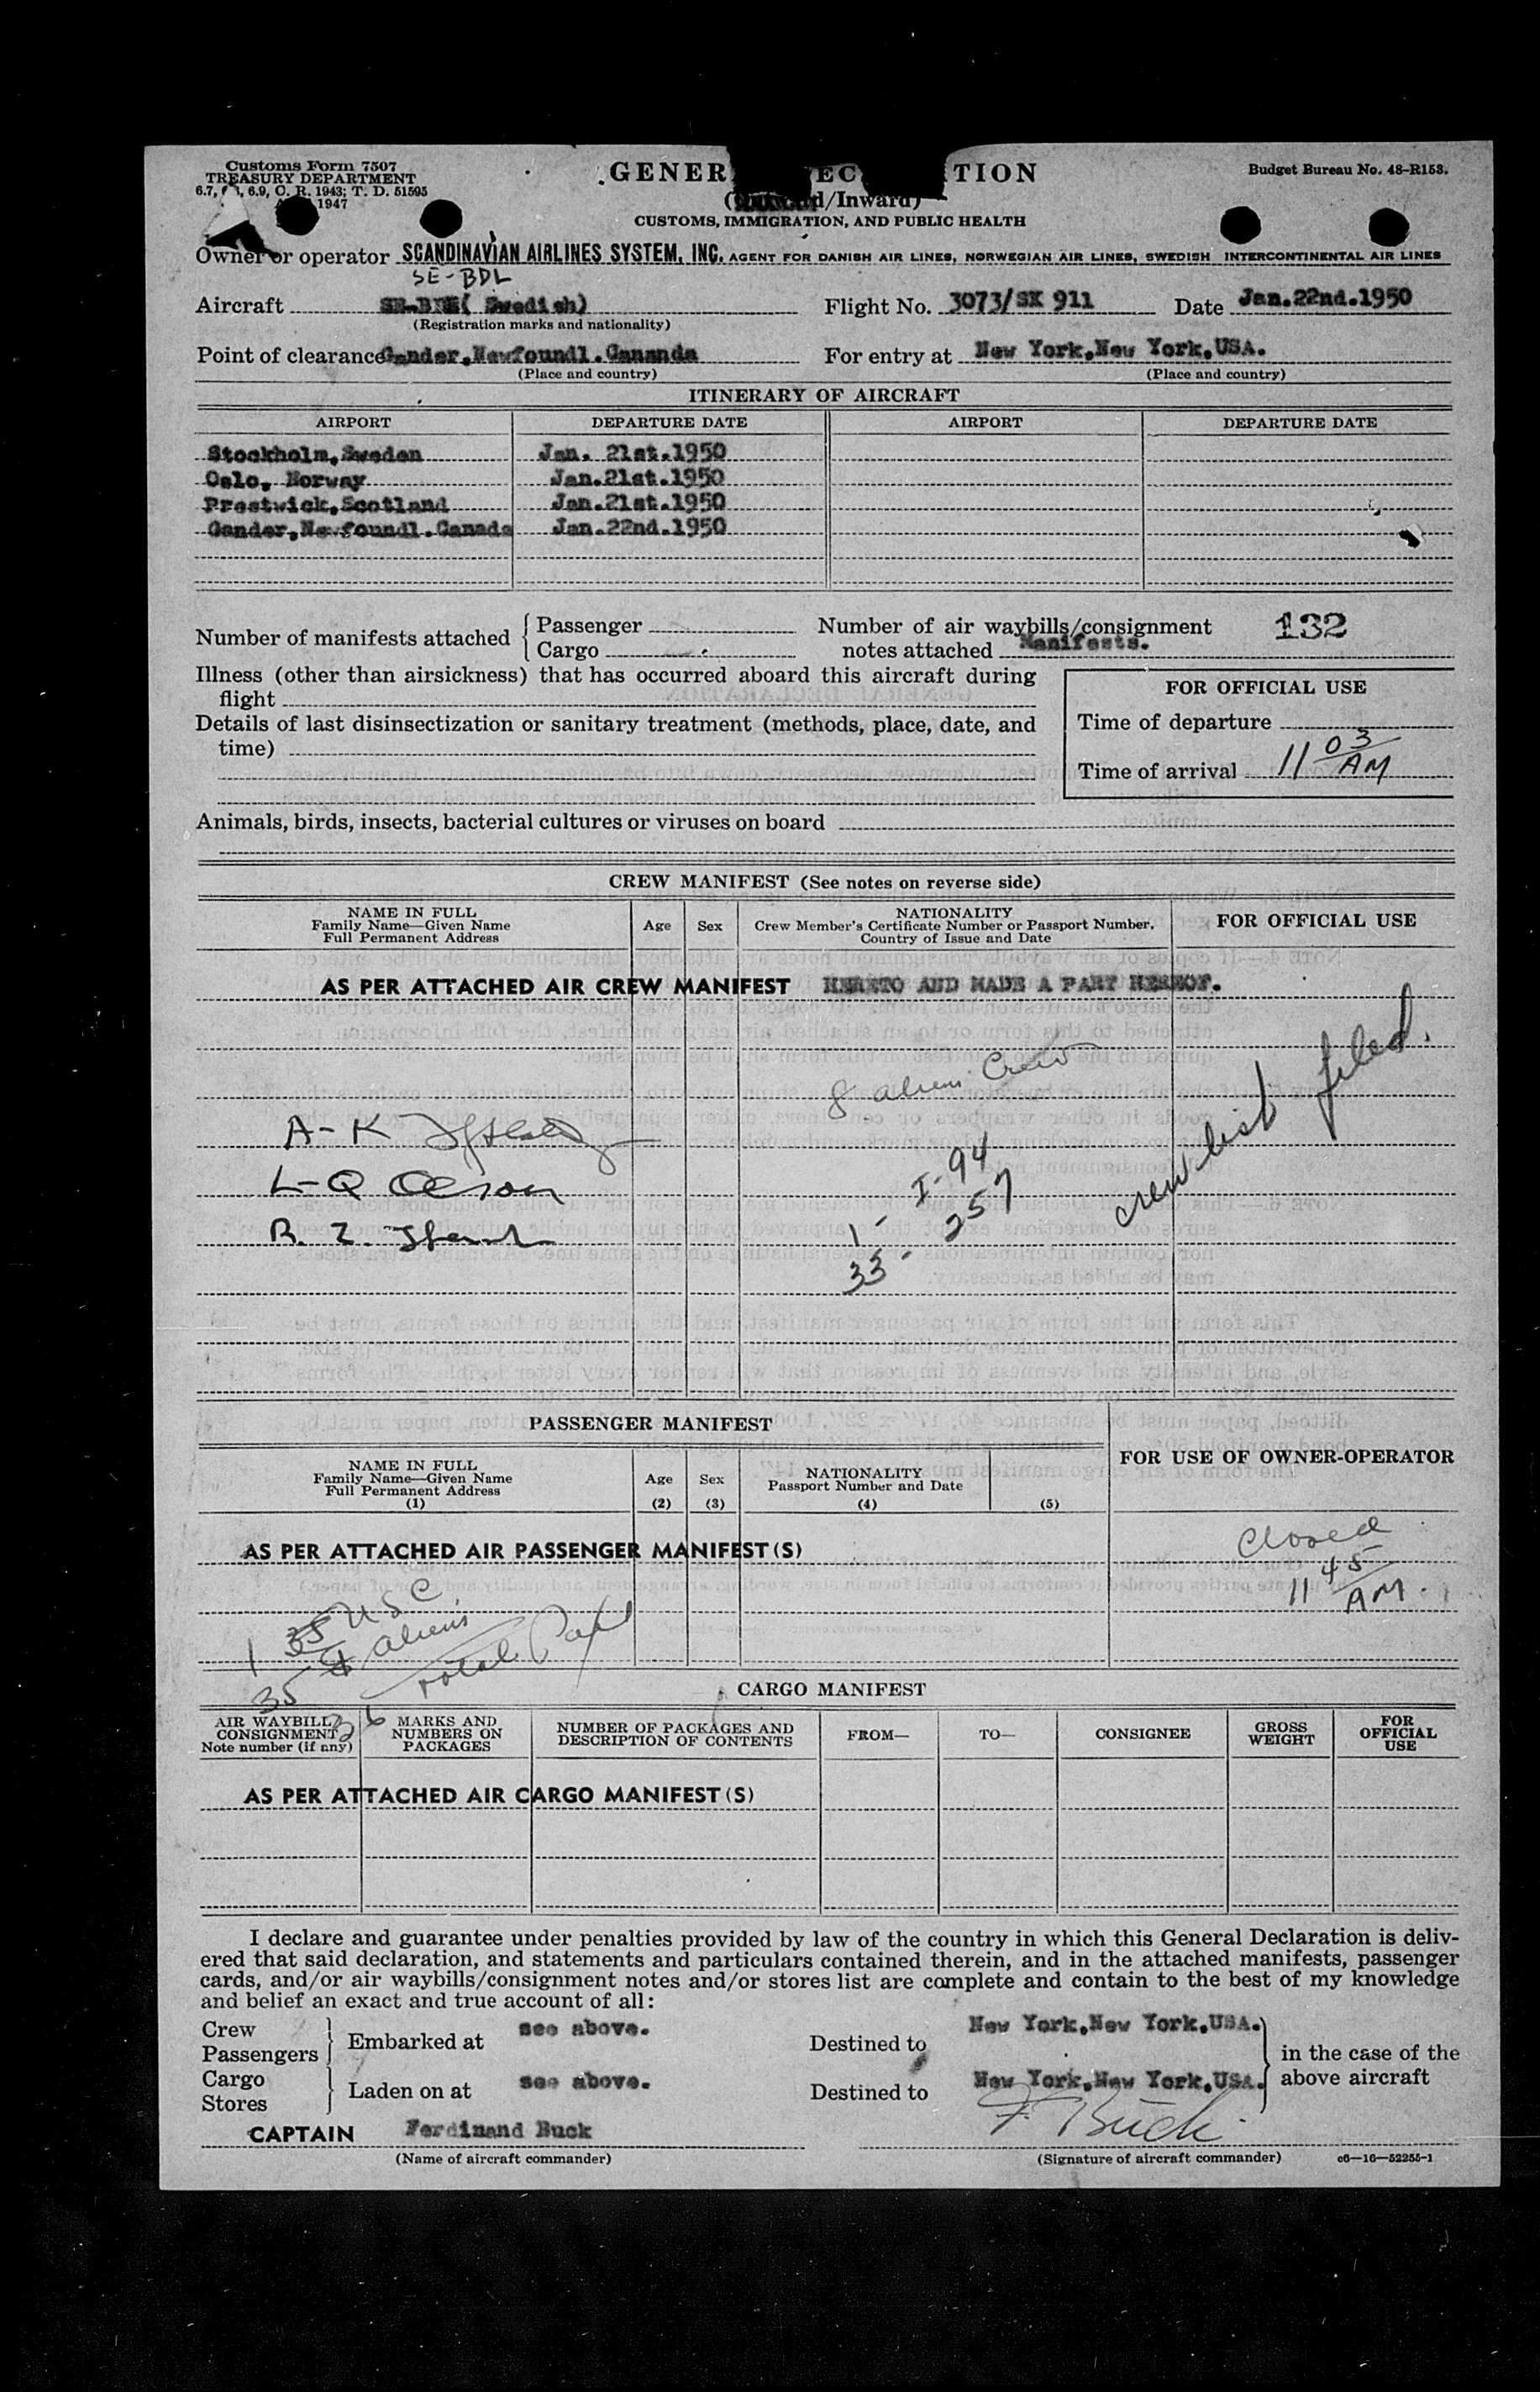 Customs Form 7507
TREASURY DEPARTMENT
6.9, C. R. 1943; T. D. 51595
1947
Budget Bureau No. 48-R153.
GENER EC TION
d/Inward)
CUSTOMS, IMMIGRATION, AND PUBLIC HEALTH
Owner or operator SCANDINAVIAN AIRLINES SYSTEM, INC. AGENT FOR DANISH AIR LINES, NORWEGIAN AIR LINES, SWEDISH INTERCONTINENTAL AIR LINES
SE-BDL
Aircraft (Swedish) Flight No. 3073/SK 911 Date Jan.22nd.1950
(Registration marks and nationality)
Point of clearance Gander,Newfoundl.Cananda For entry at New York,New York,USA.
(Place and country) (Place and country)
ITINERARY OF AIRCRAFT
AIRPORT DEPARTURE DATE AIRPORT DEPARTURE DATE
Stockholm,Sweden Jan. 21st.1950
Oslo, Norway Jan.21st.1950
Prestwick,Scotland Jan.21st.1950
Gander,Newfoundl.Canada Jan.22nd.1950
Number of manifests attached { Passenger Number of air waybills/consignment 132
Cargo notes attached Manifests.
Illness (other than airsickness) that has occurred aboard this aircraft during
flight
FOR OFFICIAL USE
Details of last disinsectization or sanitary treatment (methods, place, date, and
time)
Time of departure
Time of arrival 11 03 AM
Animals, birds, insects, bacterial cultures or viruses on board
CREW MANIFEST (See notes on reverse side)
NAME IN FULL
Family Name—Given Name
Full Permanent Address
Age Sex
NATIONALITY
Crew Member's Certificate Number or Passport Number,
Country of Issue and Date
FOR OFFICIAL USE
AS PER ATTACHED AIR CREW MANIFEST HERETO AND MADE A PART HEREOF.
8 aliens Crew
crew list filed.
A-K
L-Q Olson
R. Z.
1 - I-94
33 - 257
PASSENGER MANIFEST
FOR USE OF OWNER-OPERATOR
NAME IN FULL
Family Name—Given Name
Full Permanent Address
(1)
Age
(2)
Sex
(3)
NATIONALITY
Passport Number and Date
(4)
(5)
AS PER ATTACHED AIR PASSENGER MANIFEST(S)
Closed
11 45 AM.
1 USC
35 aliens
36 total Pax
CARGO MANIFEST
AIR WAYBILL
CONSIGNMENT
Note number (if any)
MARKS AND
NUMBERS ON
PACKAGES
NUMBER OF PACKAGES AND
DESCRIPTION OF CONTENTS
FROM—
TO—
CONSIGNEE
GROSS
WEIGHT
FOR
OFFICIAL
USE
AS PER ATTACHED AIR CARGO MANIFEST(S)
I declare and guarantee under penalties provided by law of the country in which this General Declaration is deliv-
ered that said declaration, and statements and particulars contained therein, and in the attached manifests, passenger
cards, and/or air waybills/consignment notes and/or stores list are complete and contain to the best of my knowledge
and belief an exact and true account of all:
Crew
Passengers } Embarked at see above. Destined to New York,New York,USA.
Cargo
Stores } Laden on at see above. Destined to New York,New York,USA.
} in the case of the
above aircraft
CAPTAIN Ferdinand Buck F. Buck
(Name of aircraft commander) (Signature of aircraft commander) c6—16—52255-1